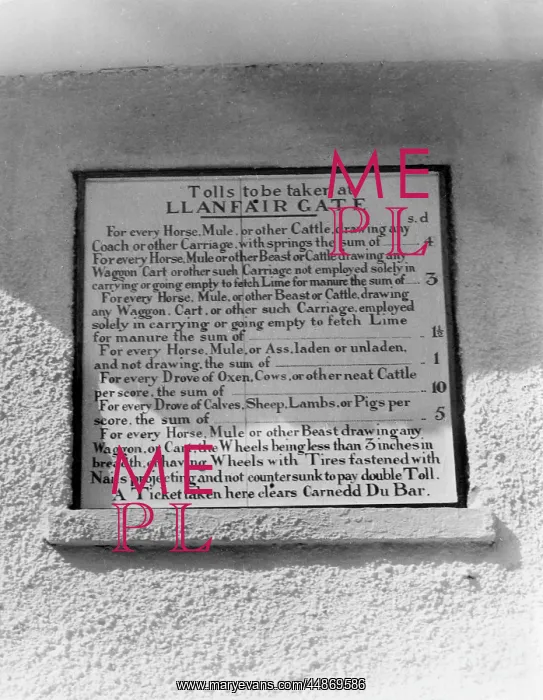 Tolls to be taken at
LLANFAIR GATE
s. d
For every Horse, Mule, or other Cattle, drawing any
Coach or other Carriage, with springs the sum of 4
For every Horse, Mule or other Beast or Cattle drawing any
Waggon Cart or other such Carriage not employed solely in
carrying or going empty to fetch Lime for manure the sum of 3
For every Horse, Mule, or other Beast or Cattle, drawing
any Waggon, Cart, or other such Carriage, employed
solely in carrying or going empty to fetch Lime
for manure the sum of 1½
For every Horse, Mule, or Ass, laden or unladen,
and not drawing, the sum of 1
For every Drove of Oxen, Cows, or other neat Cattle
per score, the sum of 10
For every Drove of Calves, Sheep, Lambs, or Pigs per
score, the sum of 5
For every Horse, Mule or other Beast drawing any
Waggon, or Cart, the Wheels being less than 3 inches in
breadth, or having Wheels with Tires fastened with
Nails projecting and not countersunk to pay double Toll.
A Ticket taken here clears Carnedd Du Bar.
ME
PL
ME
PL
www.maryevans.com/44869586